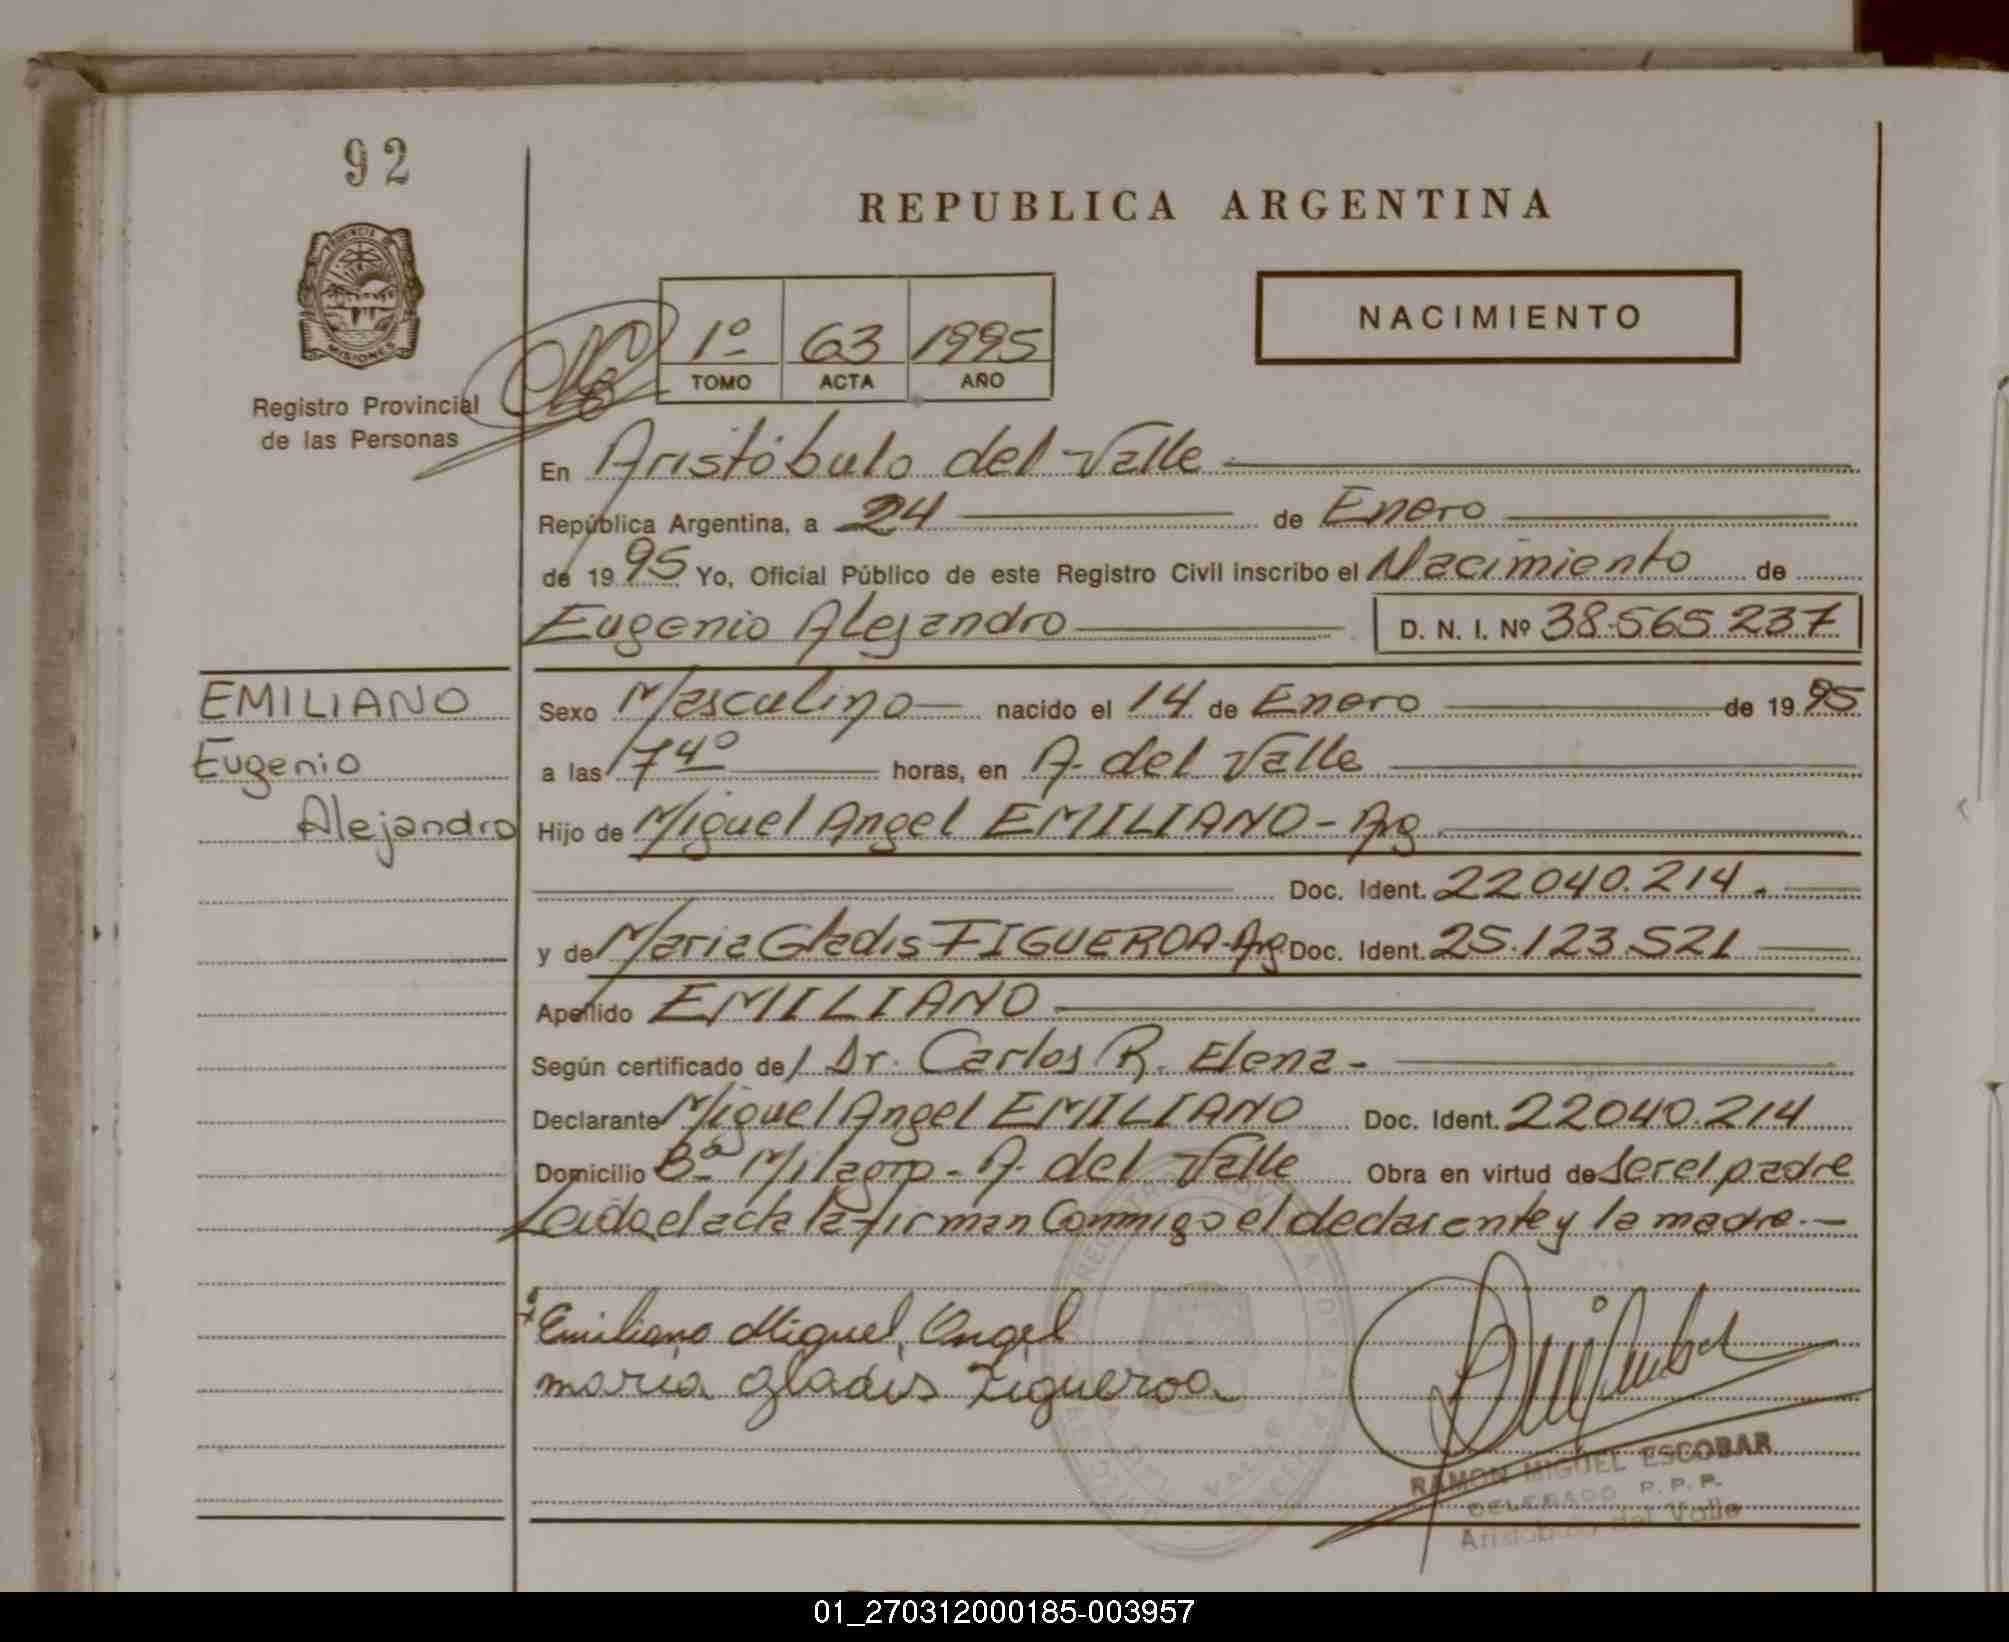 92
REPUBLICA ARGENTINA
PROVINCIA DE
MISIONES
Registro Provincial
de las Personas
1º 63 1995
TOMO ACTA AÑO
NACIMIENTO
En Aristóbulo del Valle
República Argentina, a 24 de Enero
de 1995 Yo, Oficial Público de este Registro Civil inscribo el Nacimiento de
Eugenio Alejandro D. N. I. Nº 38.565.237
EMILIANO
Eugenio
Alejandro
Sexo Masculino nacido el 14 de Enero de 1995
a las 7 40 horas, en A. del Valle
Hijo de Miguel Angel EMILIANO - Arg
Doc. Ident. 22040.214.
y de Maria Gladis FIGUEROA - Arg Doc. Ident. 25.123.521
Apellido EMILIANO
Según certificado del Dr. Carlos R. Elena -
Declarante Miguel Angel EMILIANO Doc. Ident. 22040.214
Domicilio Bº Milagro - A. del Valle Obra en virtud de ser el padre
Leida el acta la firman Conmigo el declarante y la madre.-
Emiliano Miguel Angel
maria gladis Figueroa
RAMON MIGUEL ESCOBAR
DELEGADO P.P.P.
Aristobulo del Valle
01_270312000185-003957